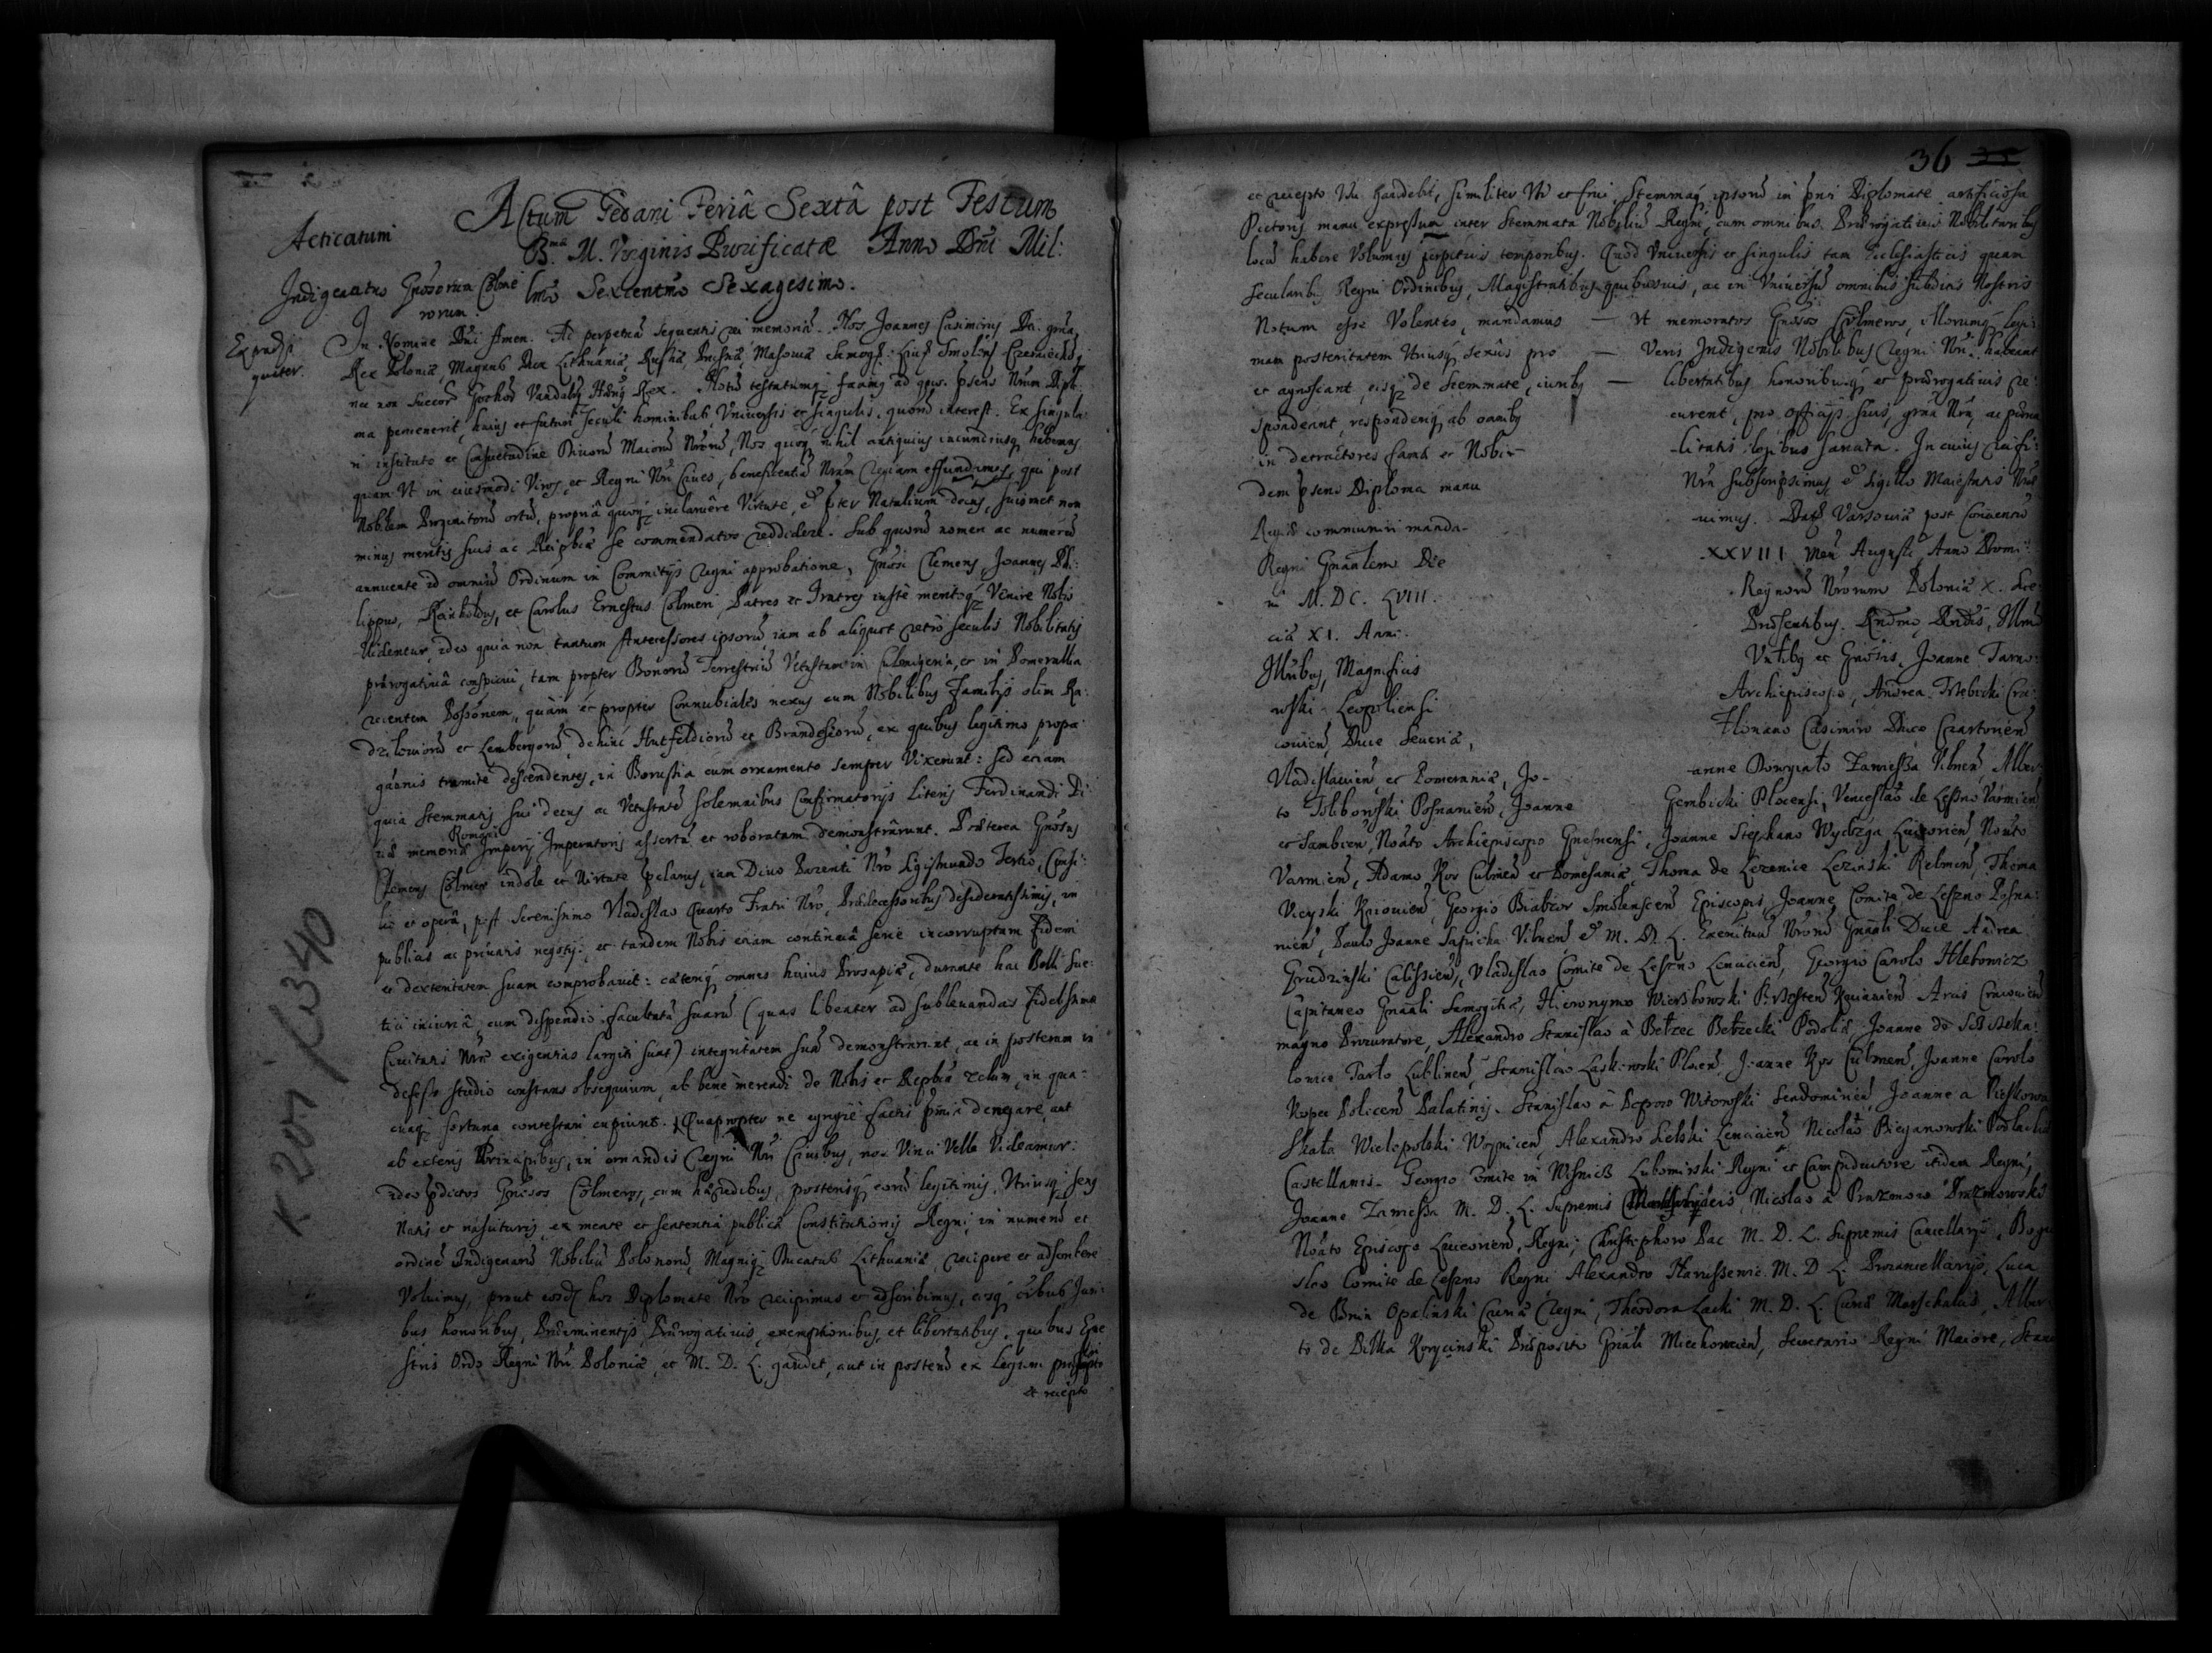 Actum Gedani Feriâ Sextâ post Festum
B.mæ M. Virginis Purificatæ Anno Dni Mil:
lmo Sexcentmo Sexagesimo.
Acticatum
Indigenatus Gnosorum Cölme
rorum.
In Nomine Dni Amen. Ad perpetuā sequentis rei memoriā. Nos Joannes Casimirus Dei grâ,
Rex Poloniæ, Magnus Dux Lithuaniæ, Russiæ, Prussiæ, Masoviæ
nec non Suecor Gothor Vandalq Rex. Notū testatumq
ma pervenerit, huius et futuri seculi hominibus Universis et singulis, quorū interest. Ex singula:
ri instituto et Consuetudine Divorū Maiorū Nrorū, Nos quoq nihil antiquius iucundiusq habemus,
quam Ut in eiusmodi Viros, et Regni Nri Cives, beneficentiā Nram Regiam effundimus, qui post
Nobilem Progenitorū ortū, propriâ quoq inclaruere Virtute, & pter Natalium decus, suismet non
minus meritis suis ac Reipbcæ se commendatos reddidere. Sub quorū nomen ac numerū
annuente id omniū Ordinum in Commitijs Regni approbatione, Gnosi Clemens, Joannes Phi:
lippus, Reinholdus, et Carolus Ernestus Cölmeri, Patres et Fratres iuste meritoq Venire Nobis
Videntur, ideo quia non tantum Antecessores ipsorū, iam ab aliquot retro seculis Nobilitatis
prærogativâ conspicui, tam propter Bonorū Terrestriū Vetustam in Culmigeria, et in Pomerellia
recentem Possonem, quàm et propter Connubiales nexus cum Nobilibus Familijs olim Ra:
dzilowiorū et Lembergorū, dehinc Hutfeldiorū et Brandesiorū, ex quibus legitimo propa:
ginis tramite descendentes, in Borussia cum ornamento semper Vixerunt: sed etiam
quia Stemmatis sui decus ac Vetustatē solemnibus Confirmatorijs Literis Ferdinandi Di:
Romani
væ memoriæ Imperij Imperatoris assertā et roboratam demonstrârunt. Præterea Gnosus
Clemens Cölmer indole et Virtute pclarus, iam Divo Parenti Nro Sigismundo Tertio, Consi:
lio et operâ, post Serenissimo Vladislao Quarto Fratri Nro, Prædecessoribus desideratissimis, in
publicis ac privatis negotijs: et tandem Nobis etiam continuâ serie incorruptam fidem
et dexteritatem suam comprobavit: cæteriq omnes huius Prosapiæ, durante hac Belli Sue:
tici iniuriâ, cum dispendio facultatū suarū (quas libenter ad sublevandas fidelissimæ
Civitatis Nræ exigentias largiti sunt) integritatem suā demonstrarunt, ac in posterum in
defesso studio constans obsequium, ab bene merendi de Nobis et Repbca zelum, in qua:
cunq fortuna contestari cupiunt. Quapropter ne egregiè factis pmia denegare, aut
ab exteris Principibus, in ornandis Regni Nri Civibus, nos Vinci Velle Videamur:
ideo pdictos Gnosos Cölmeros, cum hæredibus, posterisq eorū legitimis, Utriusq sexus
Natis et nascituris, ex mente et sententia publicæ Constitutionis Regni, in numerū et
ordinē Indigenarū Nobiliū Polonorū, Magniq Ducatus Lithuaniæ, recipere et adscribere
Voluimus, prout eosdē hoc Diplomate Nro recipimus et adscribimus, eisq oibus Juri:
bus honoribus, Præeminentijs, Prærogativis, exemptionibus, et libertatibus, quibus Eque
stris Ordo Regni Nri Poloniæ, et M. D. L. gaudet, aut in posterū ex Legum præscripto
et recepto
K 207/340
36
et recepto Usu gaudebit, similiter Uti et frui, Stemmaq ipsorū in pnti Diplomate artificiosa
Pictoris manu expressum inter Stemmata Nobiliū Regni, cum omnibus Prærogativis Nobilitaribus
locū habere Volumus perpetuis temporibus. Quod Universis et singulis tam Ecclesiasticis quam
Secularibus Regni Ordinibus, Magistratibus quibusvis, ac in Universū omnibus subditis Nostris
Notum esse Volentes, mandamus — Ut memoratos Gnosos Cölmeros, illorumq legiti
mam posteritatem Utriusq sexûs pro — Veris Indigenis Nobilibus Regni Nri habeant
et agnoscant, eisq de Stemmate, iuribus — libertatibus honoribusq et prærogativis re:
spondeant, responderiq ab omnibus curent, pro officijs suis, grâ Nra, ac pœna
in detractores famæ et Nobi- litatis legibus sancita. In cuius rei fi:
dem psens Diploma manu Nra subscripsimus, & Sigillo Maiestatis Nræ
Regiæ communiri manda- vimus. Datū Varsoviæ post Conventū
Regni Gnalem Die XXVIII Mens Augusti Anno Domi:
ni M. DC. LVIII. Regnorū Nrorum Poloniæ X. Sve
ciæ XI. Anno. Præsentibus. Rndmo, Rndis, Illmo
Illribus, Magnificis Untibus et Gnosis, Joanne Tarno:
wski Leopoliensi Archiepiscopo, Andrea Trzebicki Cra:
covien, Duce Severiæ, Floriano Casimiro Duce Czartorien
Vladislavien, et Pomeraniæ, Jo- anne Dowgiało Zawissza Vilnen, Alber
to Tolibowski Posnanien, Joanne Gembicki Plocensi, Venceslao de Leszno Varmien
et Sambien, Noâto Archiepiscopo Gnesnensi, Joanne Stephano Wydzga Luceorien, Noâto
Varmien, Adamo Kos Culmen et Pomesaniæ, Thoma de Lezenice Lezenski Chelmen, Thoma
Vieyski Kijovien, Georgio Białozor Smolenscen Episcopis, Joanne Comite de Leszno Posna:
nien, Paulo Joanne Sapieha Vilnen & M. D. L. Exercituū Nrorū Gnali Duce Andrea
Grudzinski Calissien, Vladislao Comite de Leszno Lencicien, Georgio Carolo Hlebowicz
Capitaneo Gnali Samogitiæ, Hieronymo Wierzbowski Brzesten Kuiavien Arcis Cracovien
magno Procuratore, Alexandro Stanislao à Bełzec Bełzecki Podoliæ, Joanne de
lowice Tarło Lublinen, Stanislao Laskowski Plocen, Joanne Kos Culmen, Joanne Carolo
Kopec Polocen Palatinis. Stanislao à Poprow Witowski Sendomirien, Joanne a Pieskowa
Skała Wielopolski Woynicen, Alexandro Sielski Lencicien Nicolao Bieganowski Podlachiæ
Castellanis. Georgio Comite in Wisnicz Lubomirski Regni et Campiductore itidem Regni,
Joanne Zawissa M. D. L. Supremis Nicolao à Prazmow Prazmowski
Noâto Episcopo Luceorien, Regni; Christophoro Pac M. D. L. Supremis Cancellarijs, Bogu
slao Comite de Leszno Regni Alexandro Naruszewic M. D. L. Procancellarijs, Luca
de Bnin Opalinski Curiæ Regni, Theodoro Lacki M. D. L. Curiæ Marschalcis, Alber
to de Pilca Korycinski Præposito Gnali Miechowien, Secretario Regni Maiore, Stani